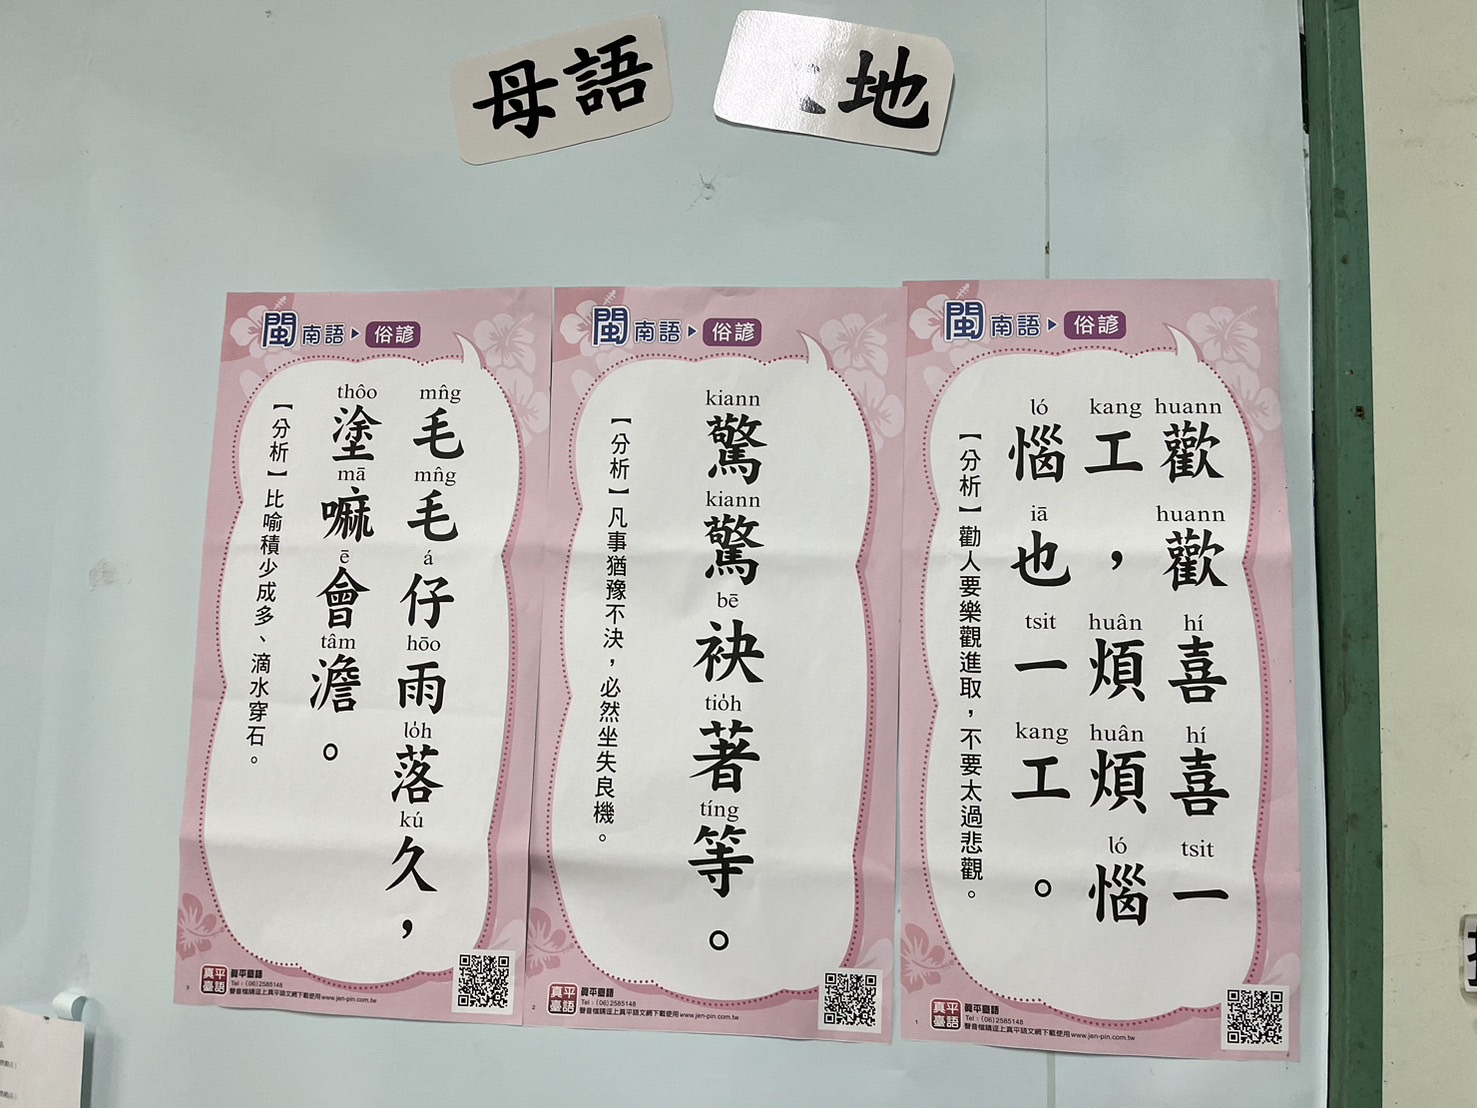 母語
地
閩南語 俗諺
huann huann hí hí tsit
歡歡喜喜一
kang huân huân ló
工，煩煩惱
ló iā tsit kang
惱也一工。
【分析】勸人要樂觀進取，不要太過悲觀。
真平臺語
真平臺語
Tel：(06)2585148
聲音檔請逕上真平語文網下載使用www.jen-pin.com.tw
1
閩南語 俗諺
kiann kiann bē tio̍h tíng
驚驚袂著等。
【分析】凡事猶豫不決，必然坐失良機。
真平臺語
真平臺語
Tel：(06)2585148
聲音檔請逕上真平語文網下載使用www.jen-pin.com.tw
2
閩南語 俗諺
mn̂g mn̂g á hōo lo̍h kú
毛毛仔雨落久，
thôo mā ē tâm
塗嘛會澹。
【分析】比喻積少成多、滴水穿石。
真平臺語
真平臺語
Tel：(06)2585148
聲音檔請逕上真平語文網下載使用www.jen-pin.com.tw
3